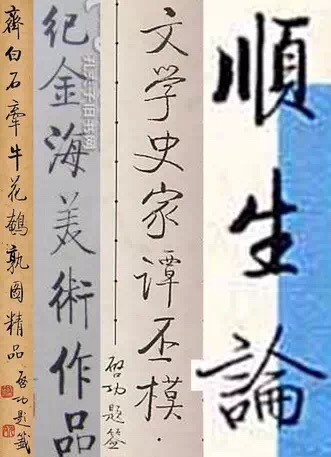 齊白石牽牛花鵪鶉圖精品
启功題籤
紀金海美術作品
孔夫子旧书网
文学史家谭丕模
啓功题签
順生論